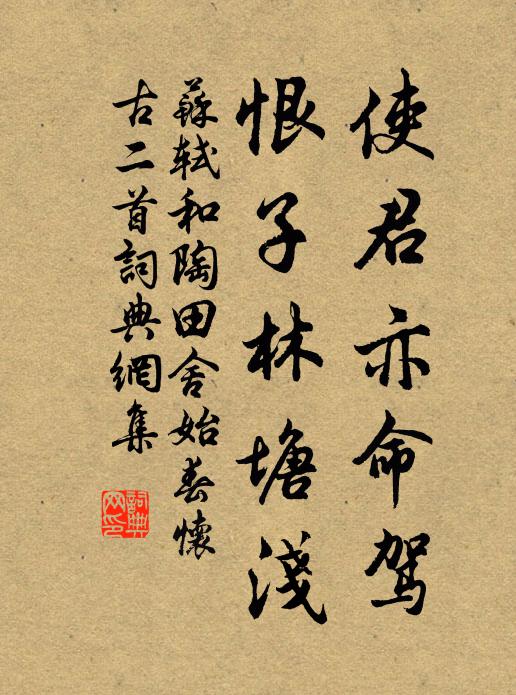 使君亦命駕
恨子林塘淺
蘇軾和陶田舍始春懷
古二首詞典網集
詞典
网印